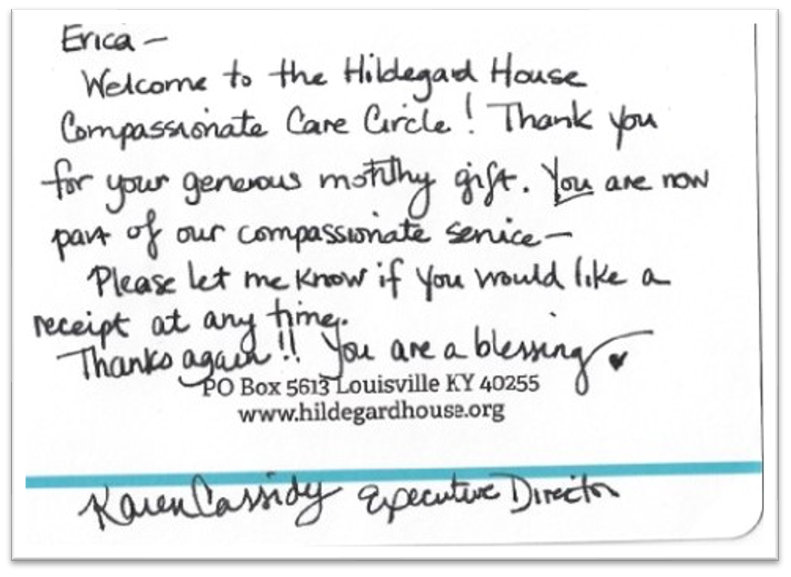 Erica –
Welcome to the Hildegard House
Compassionate Care Circle! Thank you
for your generous monthly gift. You are now
part of our compassionate service –
Please let me know if you would like a
receipt at any time.
Thanks again!! You are a blessing ♥
PO Box 5613 Louisville KY 40255
www.hildegardhouse.org
Karen Cassidy Executive Director